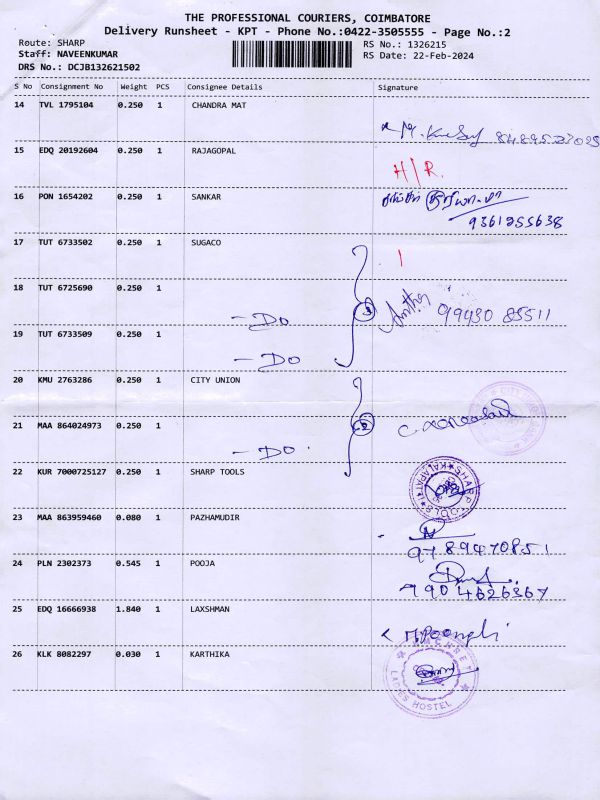 THE PROFESSIONAL COURIERS, COIMBATORE
Delivery Runsheet - KPT - Phone No.:0422-3505555 - Page No.:2
Route: SHARP
RS No.: 1326215
Staff: NAVEENKUMAR
RS Date: 22-Feb-2024
DRS No.: DCJB132621502
S No Consignment No Weight PCS Consignee Details Signature
14 TVL 1795104 0.250 1 CHANDRA MAT
15 EDQ 20192604 0.250 1 RAJAGOPAL
H/R.
16 PON 1654202 0.250 1 SANKAR
9361255638
17 TUT 6733502 0.250 1 SUGACO
18 TUT 6725690 0.250 1
- DO 3 99430 85511
19 TUT 6733509 0.250 1
- DO
20 KMU 2763286 0.250 1 CITY UNION
21 MAA 864024973 0.250 1
2
- DO
22 KUR 7000725127 0.250 1 SHARP TOOLS
SHARP TOOLS
23 MAA 863959460 0.080 1 PAZHAMUDIR
9789470851
24 PLN 2302373 0.545 1 POOJA
9904626367
25 EDQ 16666938 1.840 1 LAXSHMAN
26 KLK 8082297 0.030 1 KARTHIKA
LADIES HOSTEL